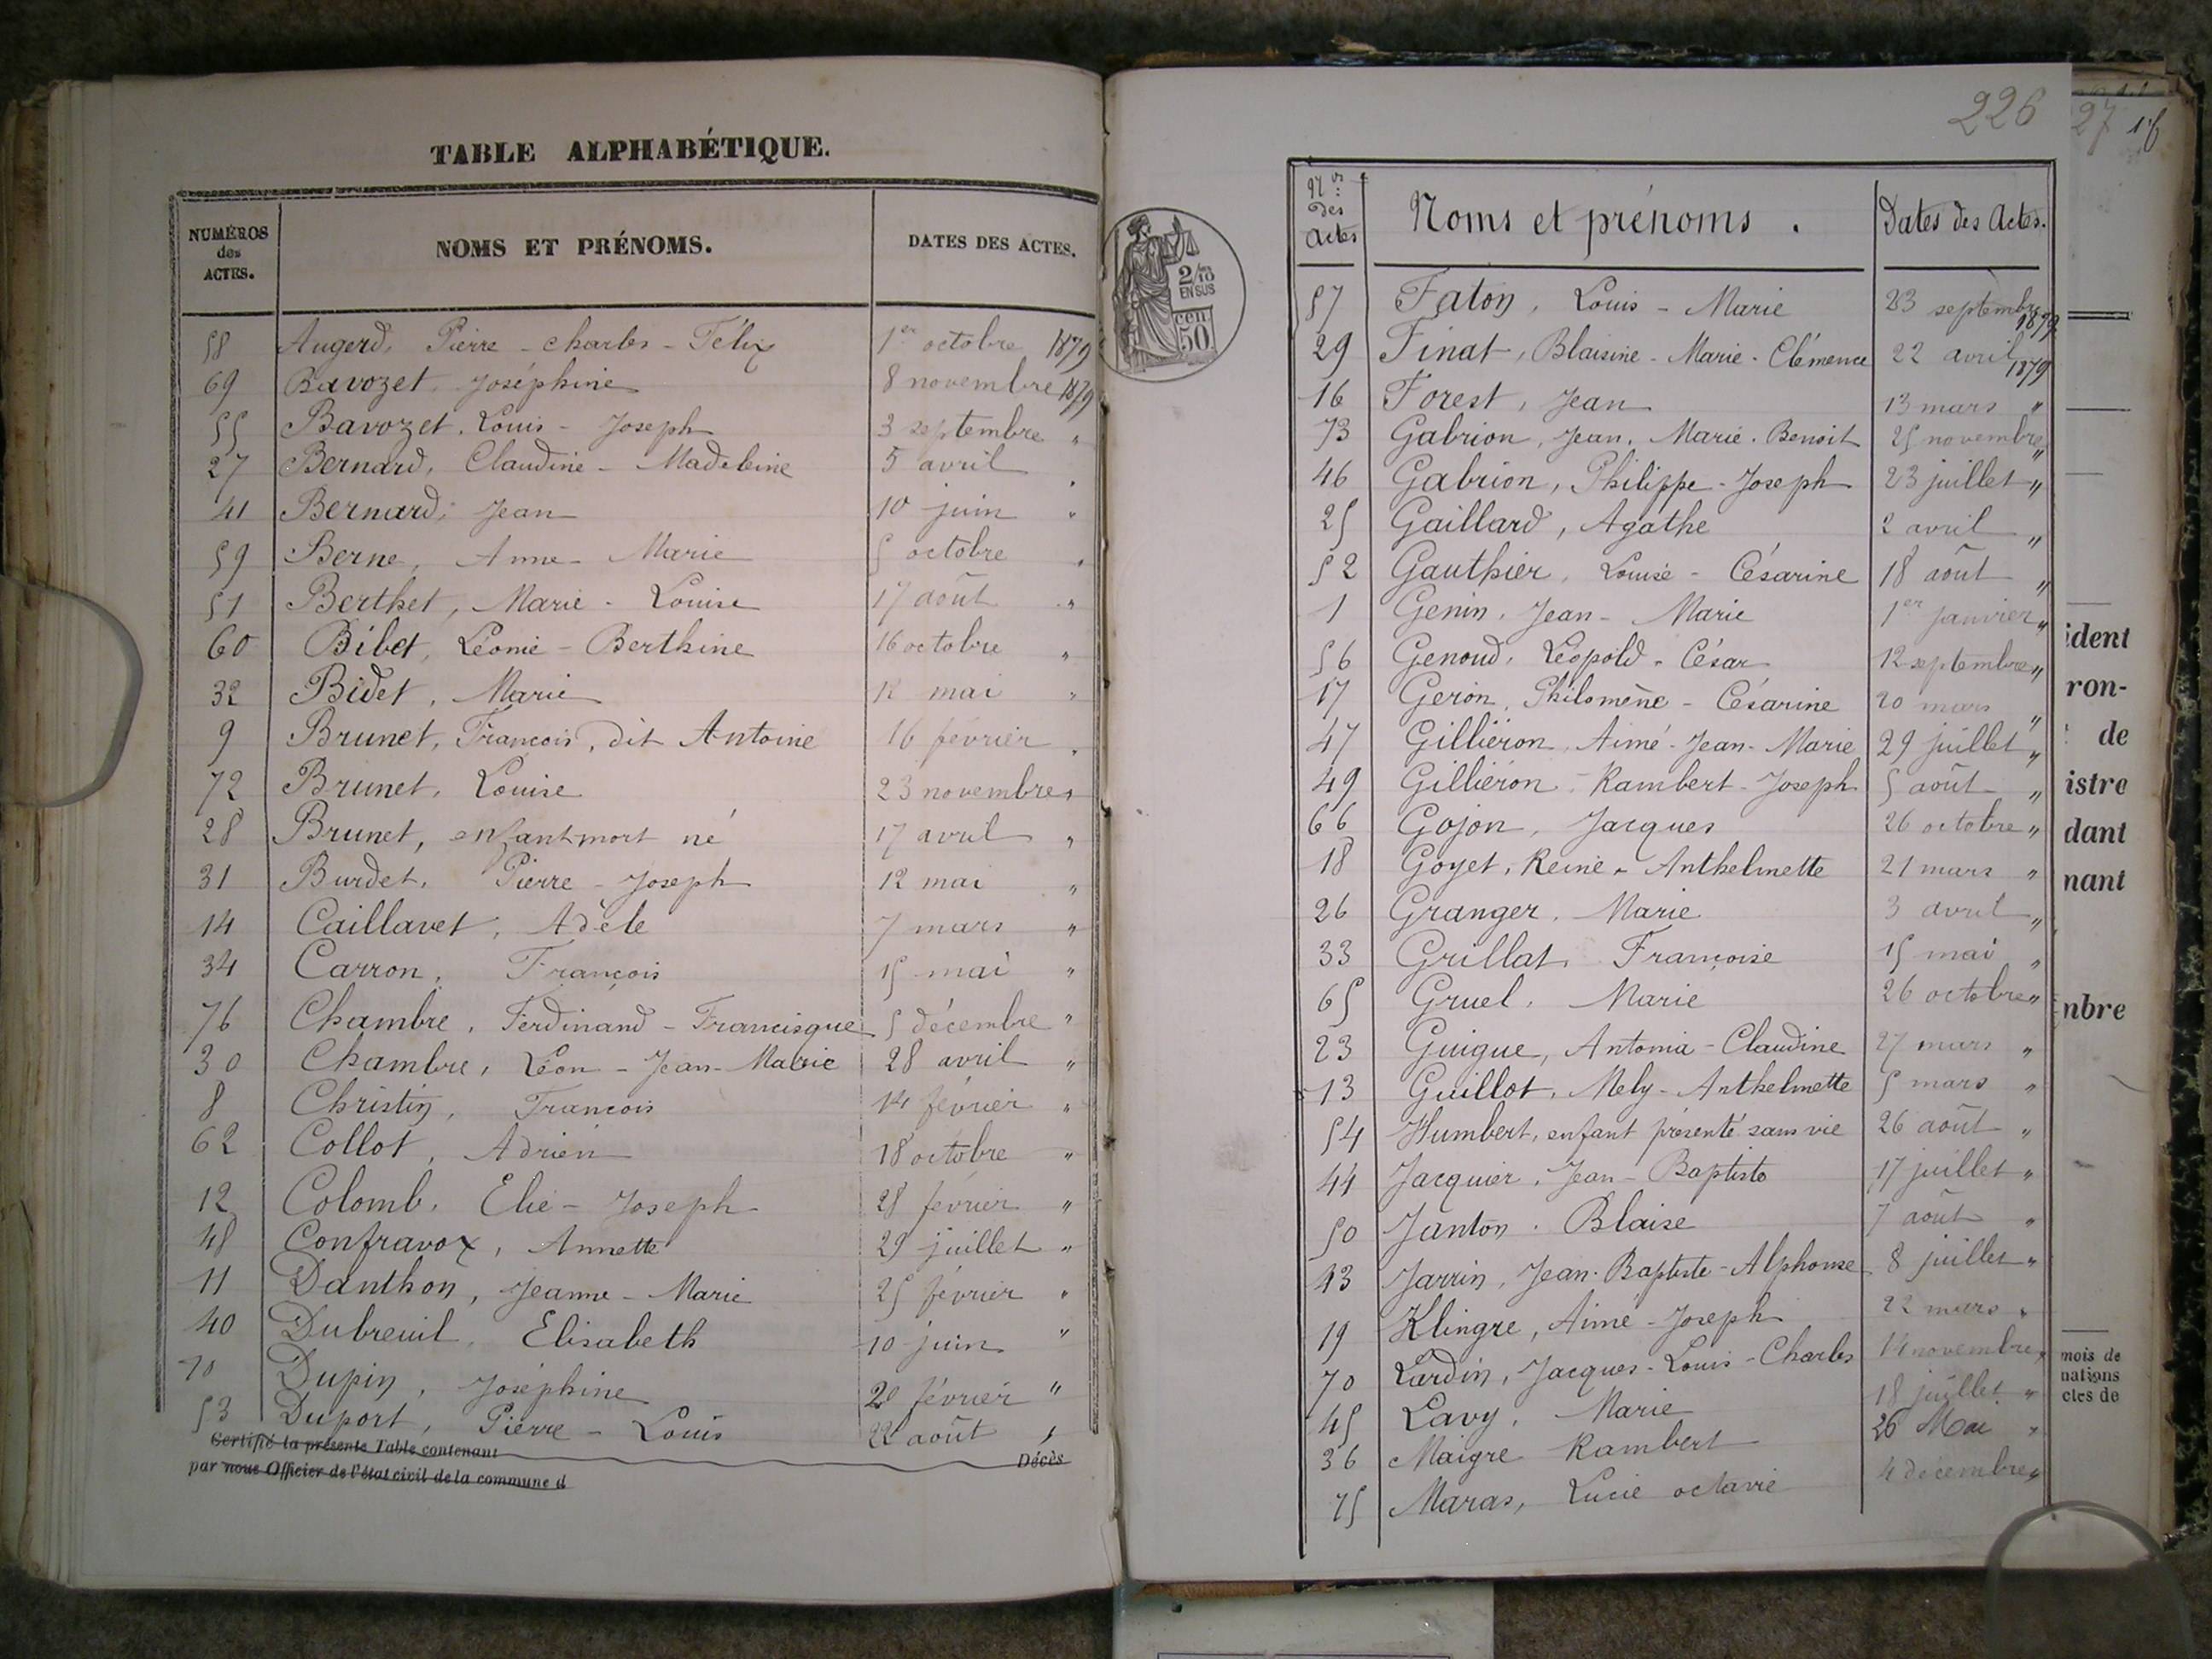 TABLE ALPHABÉTIQUE.
NUMÉROS des ACTES. NOMS ET PRÉNOMS. DATES DES ACTES.
58 Augerd, Pierre - Charles - Félix 1er octobre 1879
69 Bavozet, Joséphine 8 novembre 1879
55 Bavozet, Louis - Joseph 3 septembre "
27 Bernard, Claudine - Madeleine 5 avril "
41 Bernard, Jean 10 juin "
59 Berne, Anne - Marie 5 octobre "
51 Berthet, Marie - Louise 17 août "
60 Bibet, Léonie - Berthine 16 octobre "
32 Bidet, Marie 12 mai "
9 Brunet, François, dit Antoine 16 février "
72 Brunet, Louise 23 novembre "
28 Brunet, enfant mort né 17 avril "
31 Burdet, Pierre - Joseph 12 mai "
14 Caillavet, Adèle 7 mars "
34 Carron, François 15 mai "
76 Chambre, Ferdinand - Francisque 5 décembre "
30 Chambre, Léon - Jean - Marie 28 avril "
8 Christin, François 14 février "
62 Collot, Adrien 18 octobre "
12 Colomb, Elie - Joseph 28 février "
48 Confravox, Annette 29 juillet "
11 Danthon, Jeanne - Marie 25 février "
40 Dubreuil, Elisabeth 10 juin "
10 Dupin, Joséphine 20 février "
53 Duport, Pierre - Louis 22 août "
Certifié la présente Table contenant Décès
par nous Officier de l'état civil de la commune d
2/10 EN SUS
50 cen
226
27 16
Nos des Actes Noms et prénoms. Dates des Actes.
57 Faton, Louis - Marie 23 septembre 1879
29 Finat, Blaisine - Marie - Clémence 22 avril 1879
16 Forest, Jean 13 mars "
73 Gabrion, Jean, Marie, Benoit 25 novembre "
46 Gabrion, Philippe - Joseph 23 juillet "
25 Gaillard, Agathe 2 avril "
52 Gauthier, Louise - Césarine 18 août "
1 Genin, Jean - Marie 1er Janvier "
56 Genoud, Léopold - César 12 septembre "
17 Geron, Philomène - Césarine 20 mars "
47 Gilliéron, Aimé - Jean - Marie 29 juillet "
49 Gilliéron - Rambert - Joseph 5 août "
66 Gojon, Jacques 26 octobre "
18 Goyet, Reine - Anthelmette 21 mars "
26 Granger, Marie 3 avril "
33 Grillat, Françoise 15 mai "
65 Gruel, Marie 26 octobre "
23 Guigue, Antonia - Claudine 27 mars "
13 Guillot, Mely - Anthelmette 5 mars "
54 Humbert, enfant présenté sans vie 26 août "
44 Jacquier, Jean - Baptiste 17 juillet "
50 Janton, Blaise 7 août "
43 Jarrin, Jean - Baptiste - Alphonse 8 juillet "
19 Klingre, Aimé - Joseph 22 mars "
70 Lardin, Jacques - Louis - Charles 14 novembre "
45 Lavy, Marie 18 juillet "
36 Maigre Rambert 26 Mai "
75 Maras, Lucie octavie 4 décembre "
ident
ron-
de
istre
dant
nant
mbre
mois de
nations
ctes de